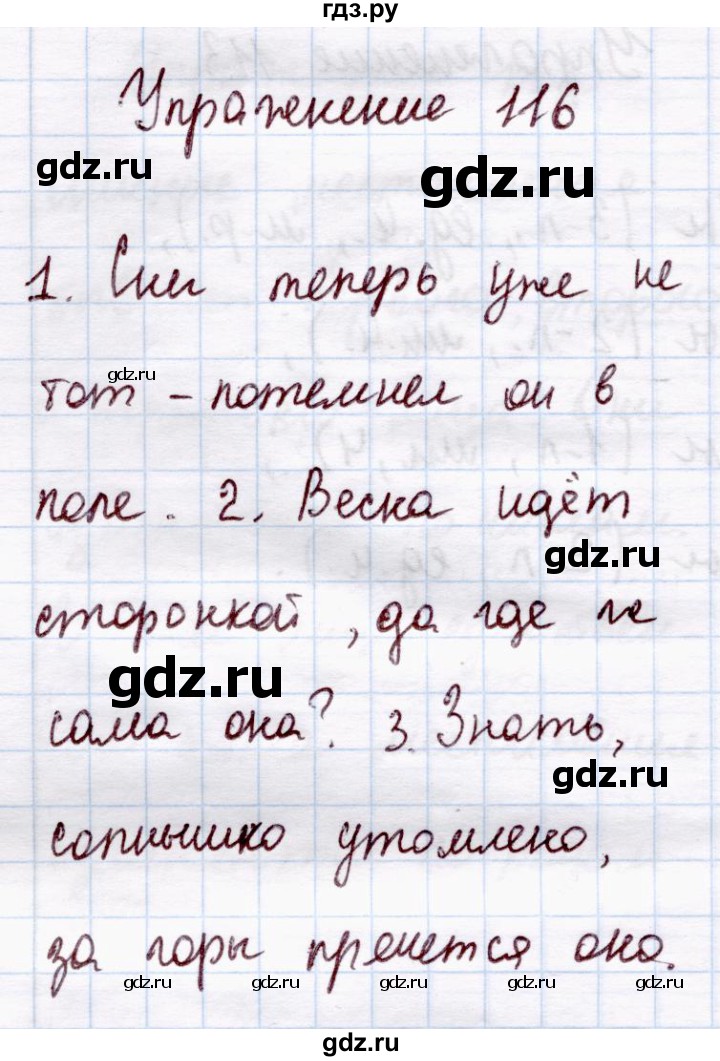 гдз.ру
Упражнение 116
gdz.ru
gdz.ru
1. Снег теперь уже не
gdz.ru
тот - потемнел он в
поле. 2. Весна идёт
gdz.ru
сторонкой, да где же
gdz.ru
сама она? 3. Знать,
gdz.ru
солнышко утомлено,
за горы прячется оно.
gdz.ru gdz.ru gdz.ru gdz.ru
gdz.ru